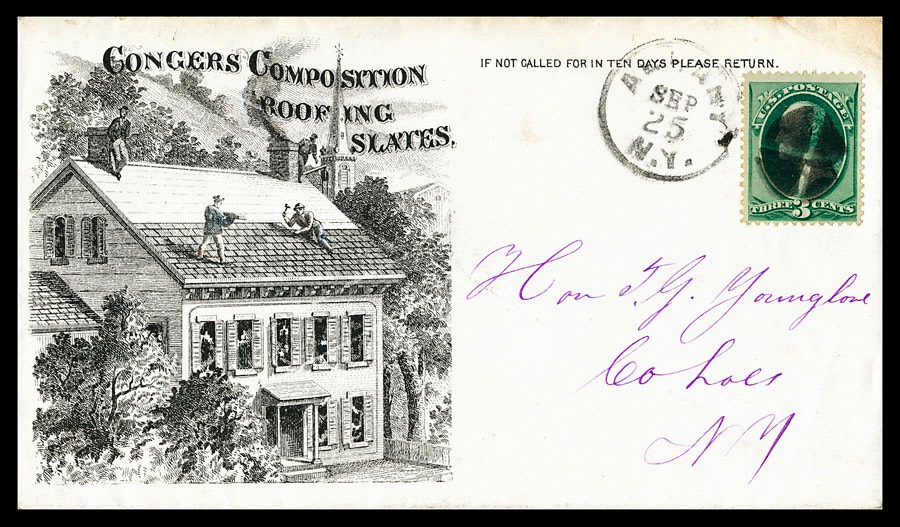 CONGERS COMPOSITION
ROOFING
SLATES.
IF NOT CALLED FOR IN TEN DAYS PLEASE RETURN.
ALBANY
SEP
25
N.Y.
U.S. POSTAGE
THREE 3 CENTS
Hon T. G. Younglove
Cohoes
NY